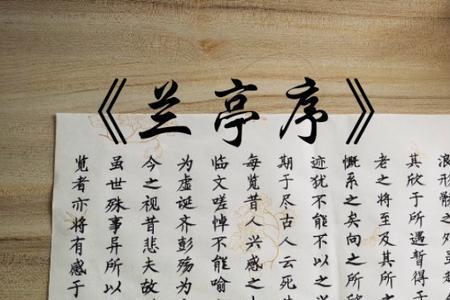 《兰亭序》
浪形骸之外虽
其欣于所遇暂得于
老之将至及其所
慨系之矣向之所
迹犹不能不以之
期于尽古人云死
每览昔人兴感之
临文嗟悼不能喻
为虚诞齐彭殇为
今之视昔悲夫故
虽世殊事异所以
览者亦将有感于